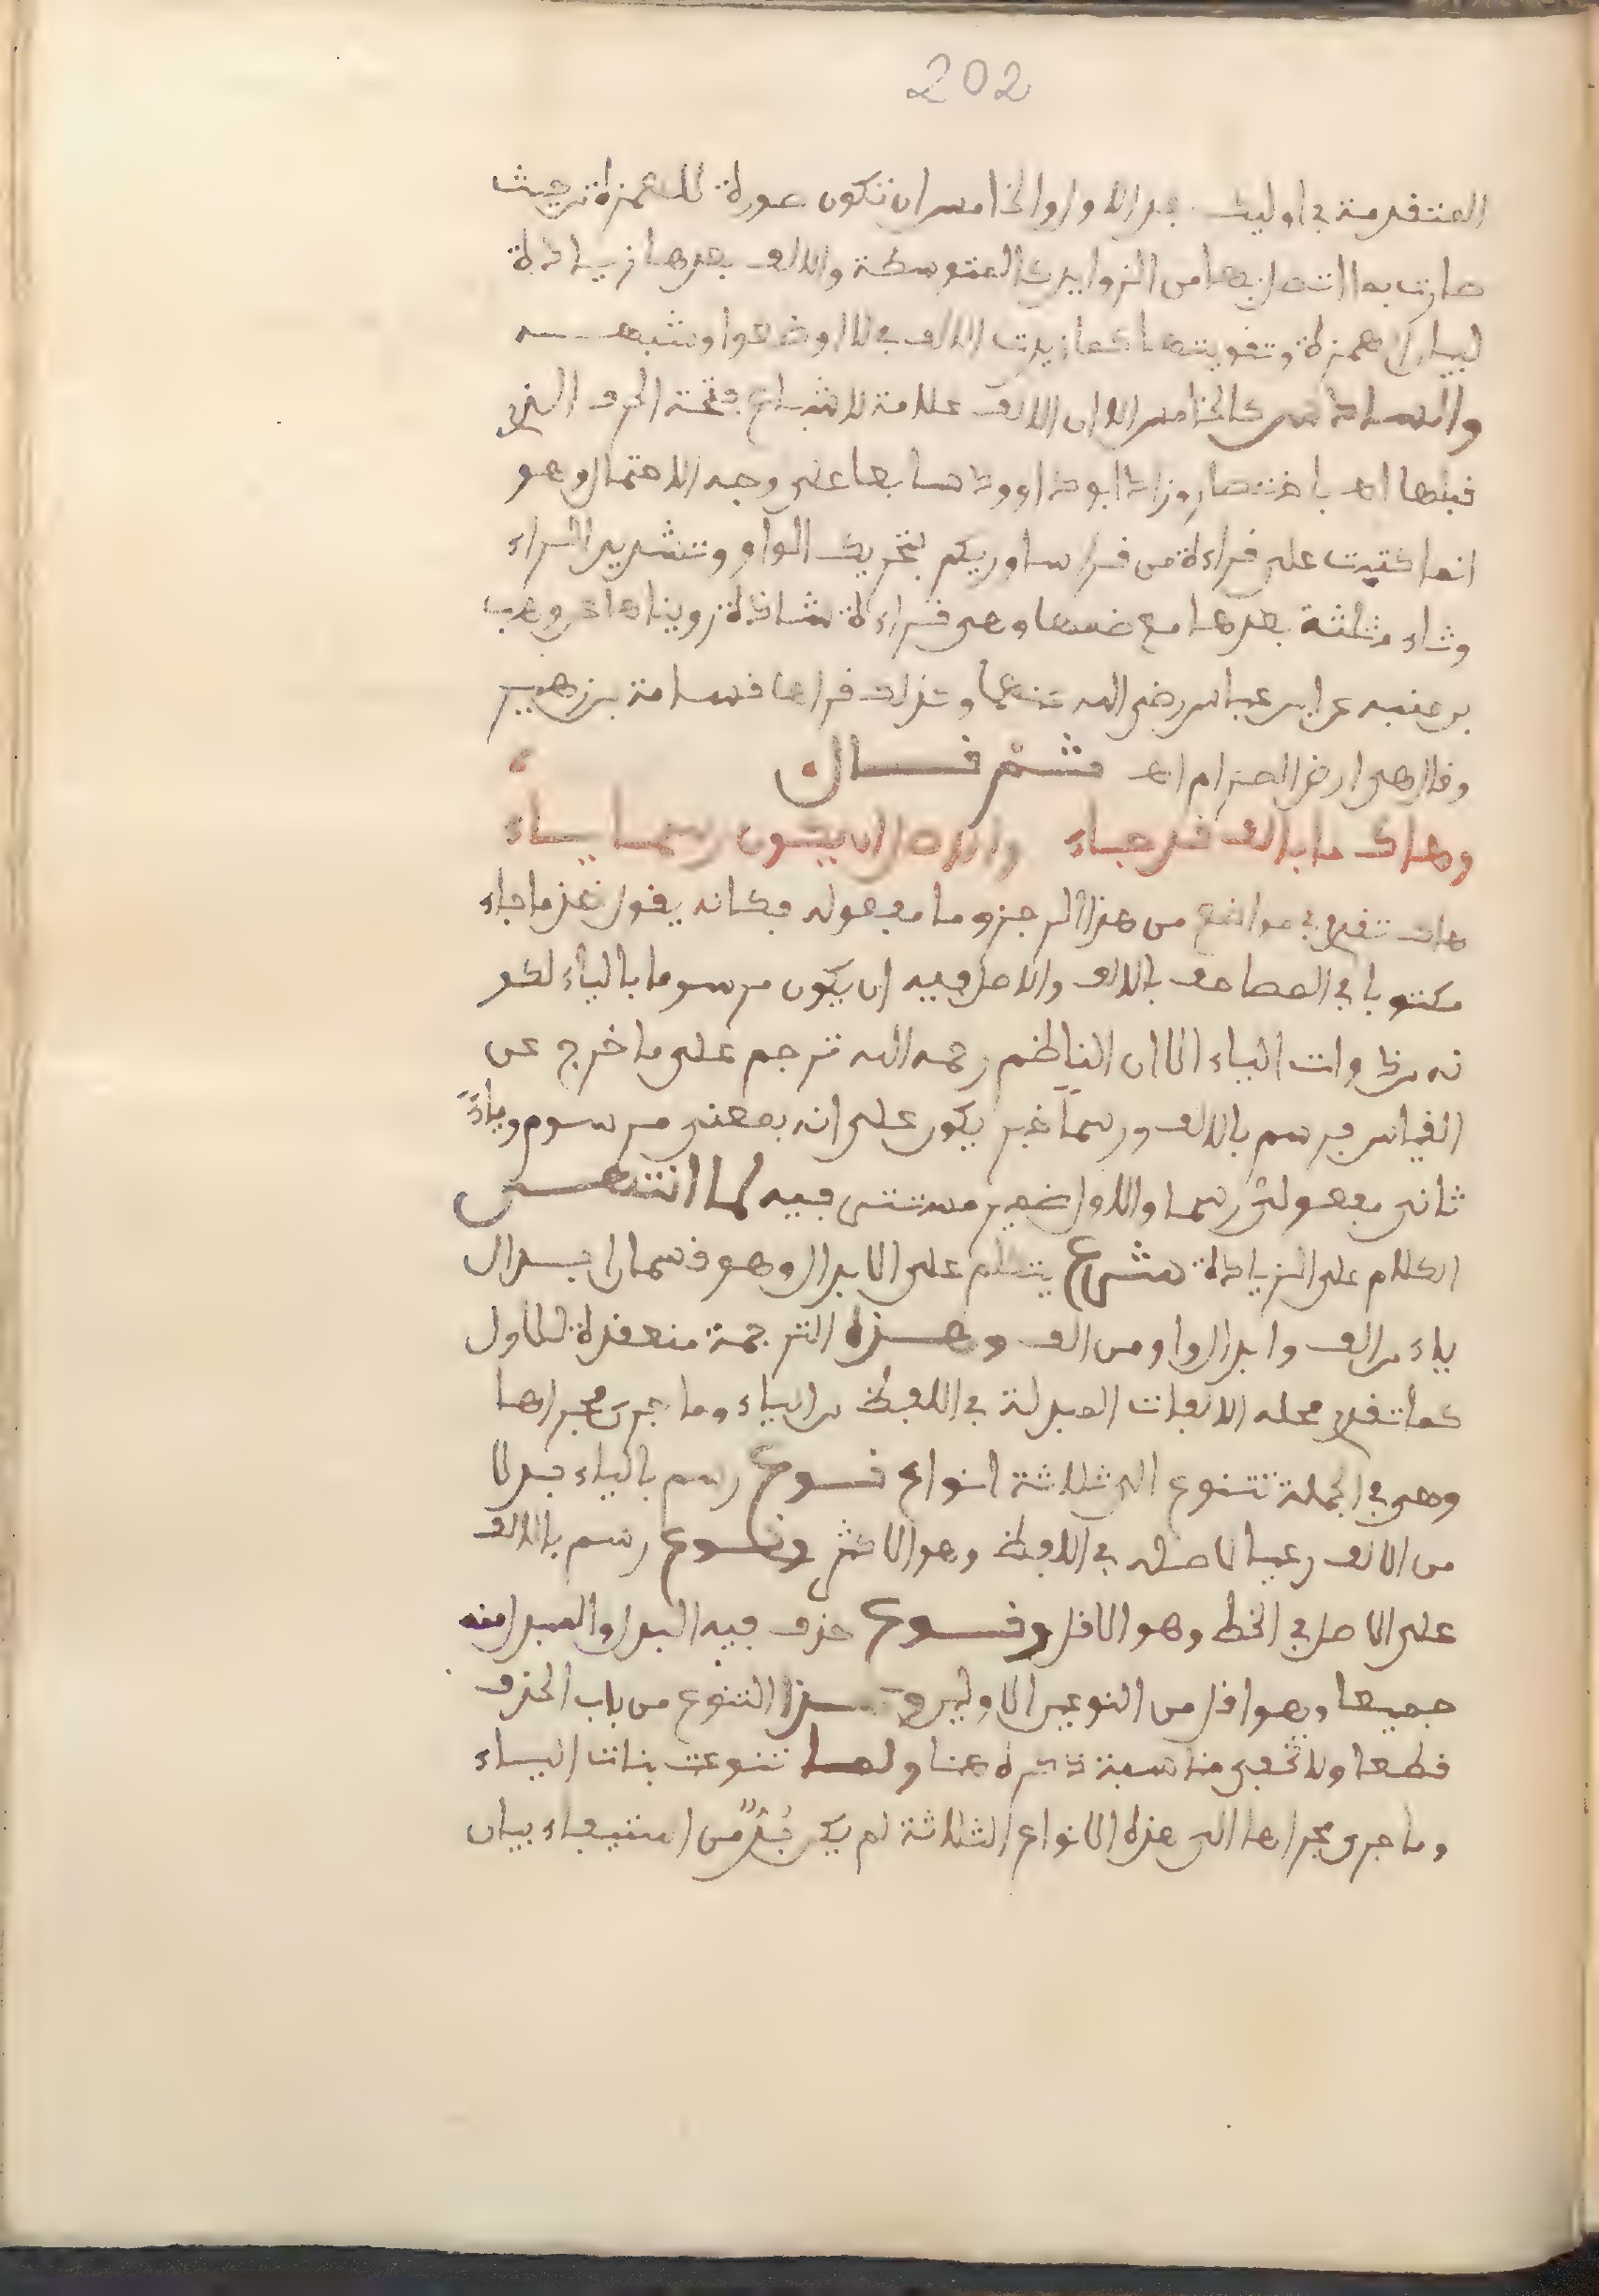 202
المتقدمة في اوليك بعد الاول والخامس ان تكون صورة للهمزة من حيث
صارت بما اتصل بها من الزوايد كالمتوسطة والالف بعدها زيادة
لبيان الهمزة وتقويتها كما زيدت الالف في لا اوضعوا وشبهه
والسادس كالخامس الا ان الالف علامة لاشباع فتحة الحرف الذي
قبلها اهـ باختصار وزاد ابو داوود سابعا على وجه الاحتمال وهو
انما كتبت على قراءة من قرا ساوريكم بتحريك الواو وتشديد الراء
وثاء مثلثة بعدها مع ضمها وهي قراءة شاذة رويناها عن وهب
بن منبه عن ابن عباس رضي الله عنهما وكذلك قراها قسامة بن زهير
وقال هي ارض الصرام اهـ ثم قال
وهاك ما بالف قد جاء والاصل ان يكون رسما ياء
هاك تقدم في مواضع من هذا الرجز وما مفعوله فكانه يقول خذ ما جاء
مكتوبا في المصاحف بالالف والاصل فيه ان يكون مرسوما بالياء لكو
نه من ذوات الياء الا ان الناظم رحمه الله ترجم على ما خرج عن
القياس فرسم بالالف ورسما خبر يكون على انه بمعنى مرسوم وياءً
ثاني مفعولي رسما والاول ضمير مستتر فيه لما انتهى
الكلام على الزيادة شرع يتكلم على الابدال وهو قسمان ابدال
ياء من الف وابدال واو من الف وهذه الترجمة منعقدة للاول
كما تقدم محله الالفات المبدلة في اللفظ من الياء وما جرى مجراها
وهي في الجملة تتنوع الى ثلاثة انواع نوع رسم بالياء بدلا
من الالف رعيا لاصله في اللفظ وهو الاكثر ونوع رسم بالالف
على الاصل في الخط وهو الاقل ونوع حذف فيه البدل والمبدل منه
جميعا وهو اقل من النوعين الاولين وهذا النوع من باب الحذف
قطعا ولا تخفى مناسبة ذكره هنا ولما تنوعت بنات الياء
وما جرى مجراها الى هذه الانواع الثلاثة لم يكن بُدٌّ من استيفاء بيان